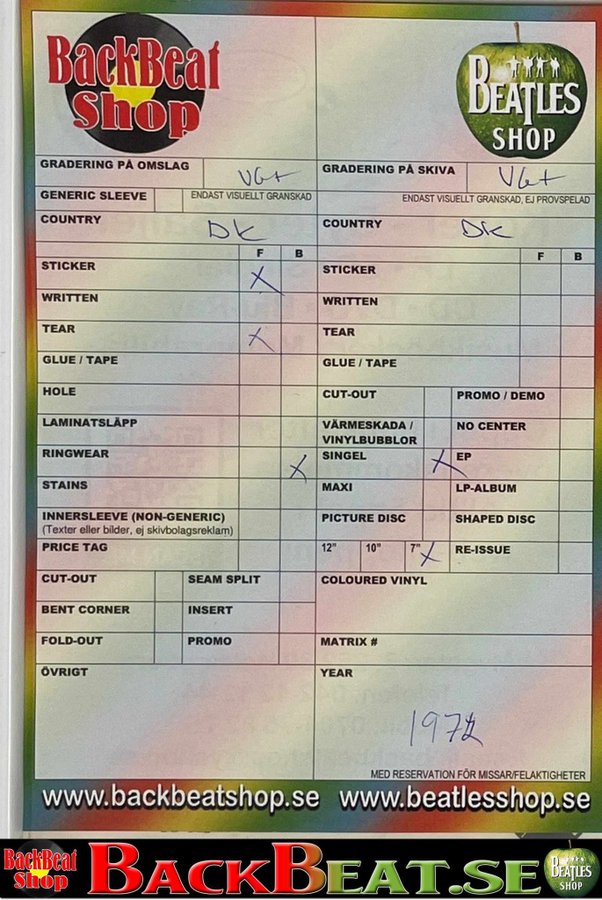 BackBeat
Shop
BEATLES
SHOP
GRADERING PÅ OMSLAG VG+
GENERIC SLEEVE ENDAST VISUELLT GRANSKAD
COUNTRY DK
F B
STICKER X
WRITTEN
TEAR X
GLUE / TAPE
HOLE
LAMINATSLÄPP
RINGWEAR X
STAINS
INNERSLEEVE (NON-GENERIC)
(Texter eller bilder, ej skivbolagsreklam)
PRICE TAG
CUT-OUT SEAM SPLIT
BENT CORNER INSERT
FOLD-OUT PROMO
ÖVRIGT
GRADERING PÅ SKIVA VG+
ENDAST VISUELLT GRANSKAD, EJ PROVSPELAD
COUNTRY DK
F B
STICKER
WRITTEN
TEAR
GLUE / TAPE
CUT-OUT PROMO / DEMO
VÄRMESKADA / NO CENTER
VINYLBUBBLOR
SINGEL X EP
MAXI LP-ALBUM
PICTURE DISC SHAPED DISC
12" 10" 7" X RE-ISSUE
COLOURED VINYL
MATRIX #
YEAR
MED RESERVATION FÖR MISSAR/FELAKTIGHETER
www.backbeatshop.se www.beatlesshop.se
BackBeat
Shop
BACKBEAT.SE
BEATLES
SHOP